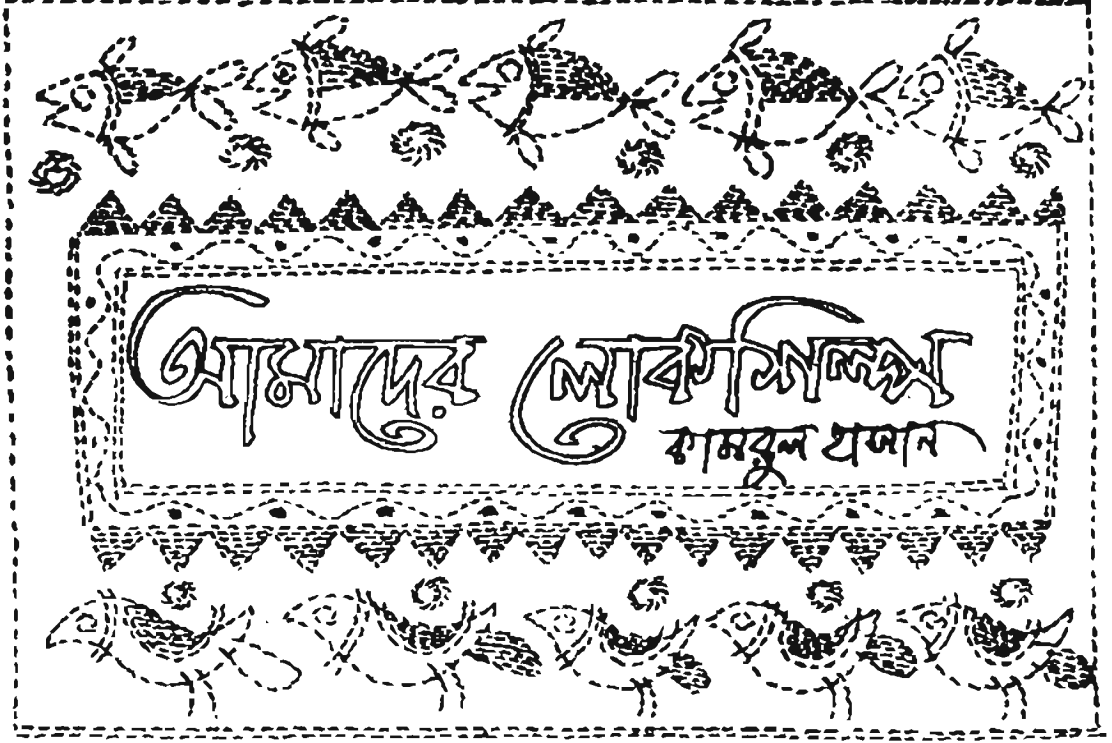 আমাদের লোকশিল্প
কামরুল হাসান